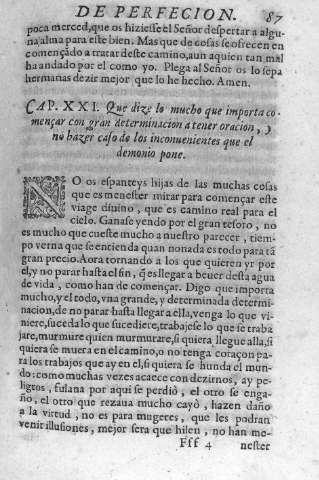 DE PERFECION. 87
poca merced, que os hiziesse el Señor despertar a algu-
na alma para este bien. Mas que de cosas se ofrecen en
començãdo a tratar deste camino, aun a quien tan mal
ha andado por el como yo. Plega al Señor os lo sepa
hermanas dezir mejor que lo he hecho. Amen.
CAP. XXI. Que dize lo mucho que importa co-
mençar con gran determinacion a tener oracion, y
no hazer caso de los inconuenientes que el
demonio pone.
NO os espanteys hijas de las muchas cosas
que es menester mirar para començar este
viage diuino, que es camino real para el
cielo. Ganase yendo por el gran tesoro, no
es mucho que cueste mucho a nuestro parecer, tiem-
po verna que se entienda quan nonada es todo para tã
gran precio. Aora tornando a los que quieren yr por
el, y no parar hasta el fin, q̃ es llegar a beuer desta agua
de vida, como han de començar. Digo que importa
mucho, y el todo, vna grande, y determinada determi-
nacion, de no parar hasta llegar a ella, venga lo que vi-
niere, suceda lo que sucediere, trabajese lo que se traba
jare, murmure quien murmurare, si quiera llegue alla, si
quiera se muera en el camino, o no tenga coraçon pa-
ra los trabajos que ay en el, si quiera se hunda el mun-
do: como muchas vezes acaece con dezirnos, ay pe-
ligros, fulana por aqui se perdiò, el otro se enga-
ño, el otro que rezaua mucho cayò, hazen daño
a la virtud, no es para mugeres, que les podran
venir illusiones, mejor sera que hilen, no han me-
Fff 4 nester